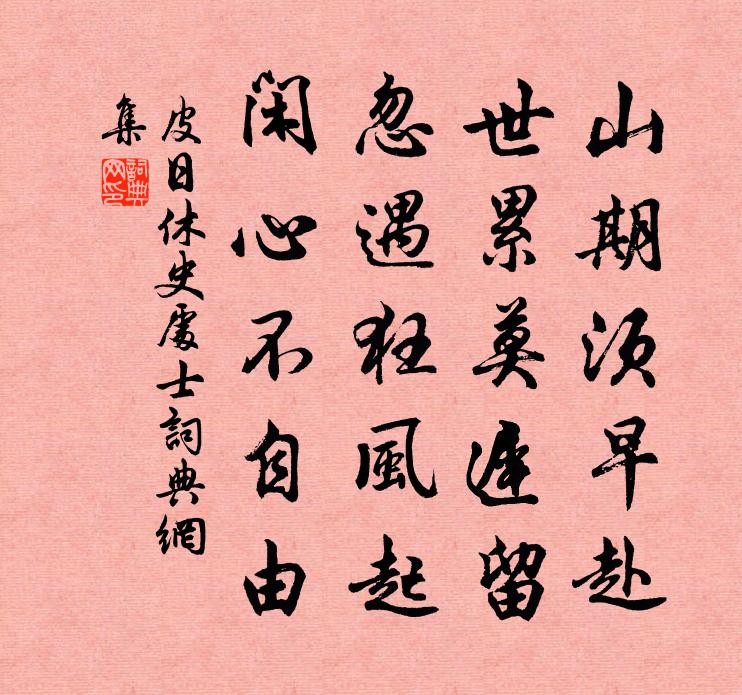 山期須早赴
世累莫遲留
忽遇狂風起
閑心不自由
皮日休史處士詞典網
集
詞典
网印